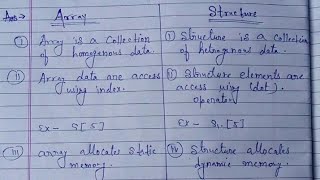 Ans:→ Array
Structure
(i) Arry is a collection
of homogenous data.
(i) Structure is a collection
of hetrogenous data.
(ii) Array data are access
using index.
(ii) Structure elements are
access using (dot).
operator
Ex- S[5]
Ex- S1.[5]
(iii) array allocates static
memory.
(iv) Structure allocates
dynamic memory.